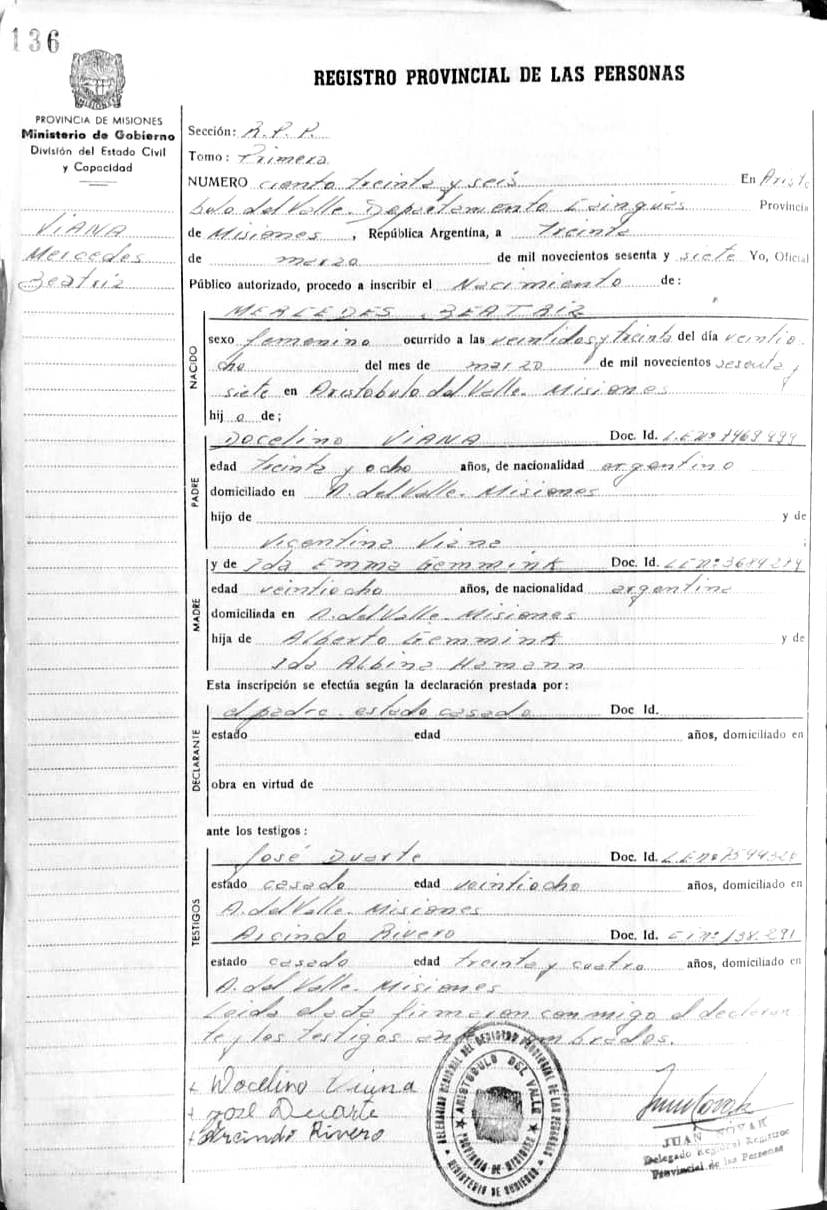 136
REGISTRO PROVINCIAL DE LAS PERSONAS
PROVINCIA DE MISIONES
Ministerio de Gobierno
División del Estado Civil
y Capacidad
VIANA
Mercedes
Beatriz
Sección: R. P. P.
Tomo: Primero
NUMERO ciento treinta y seis En Aristó
bulo del Valle. Departamento Cainguás Provincia
de Misiones, República Argentina, a treinta
de marzo de mil novecientos sesenta y siete Yo, Oficial
Público autorizado, procedo a inscribir el Nacimiento de:
NACIDO
MERCEDES BEATRIZ
sexo femenino ocurrido a las veintidos y treinta del día veintio
cho del mes de marzo de mil novecientos sesenta y
siete en Aristobulo del Valle. Misiones
hij a de;
PADRE
Docelino VIANA Doc. Id. L.E Nº 7469499
edad treinta y ocho años, de nacionalidad argentino
domiciliado en A. del Valle. Misiones
hijo de y de
Vicentina Viana ;
MADRE
y de Ida Emma Gemmink Doc. Id. LE Nº 3684214
edad veintiocho años, de nacionalidad argentina
domiciliada en A. del Valle. Misiones
hija de Alberto Gemmink y de
Ida Albina Hamann
Esta inscripción se efectúa según la declaración prestada por:
DECLARANTE
el padre. estado casado Doc Id.
estado edad años, domiciliado en
obra en virtud de
ante los testigos:
TESTIGOS
José Duarte Doc. Id. L.E Nº 7594328
estado casado edad veintiocho años, domiciliado en
A. del Valle. Misiones
Arcindo Rivero Doc. Id. Nº 138.291
estado casado edad treinta y cuatro años, domiciliado en
A. del Valle. Misiones
Leida el acta firmaron conmigo el declaran
te y los testigos
+ Docelino Viana
+ José Duarte
+ Arcindo Rivero
DELEGACION REGIONAL DEL REGISTRO PROVINCIAL DE LAS PERSONAS
ARISTOBULO DEL VALLE
PROVINCIA DE MISIONES
MINISTERIO DE GOBIERNO
JUAN NOVAK
Delegado Regional Registro
Provincial de las Personas